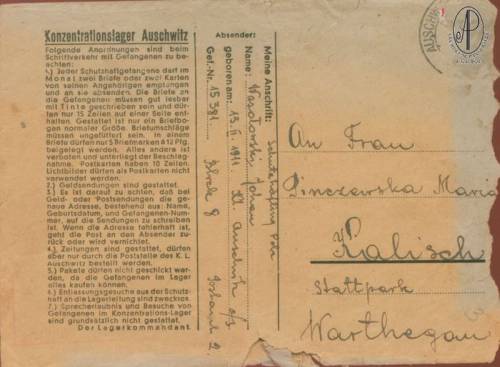 Konzentrationslager Auschwitz
Folgende Anordnungen sind beim
Schriftverkehr mit Gefangenen zu be-
achten:
1.) Jeder Schutzhaftgefangene darf im
Monat zwei Briefe oder zwei Karten
von seinen Angehörigen empfangen
und an sie absenden. Die Briefe an
die Gefangenen müssen gut lesbar
mit Tinte geschrieben sein und dür-
fen nur 15 Zeilen auf einer Seite ent-
halten. Gestattet ist nur ein Briefbo-
gen normaler Größe. Briefumschläge
müssen ungefüttert sein. In einem
Briefe dürfen nur 5 Briefmarken à 12 Pfg.
beigelegt werden. Alles andere ist
verboten und unterliegt der Beschlag-
nahme. Postkarten haben 10 Zeilen.
Lichtbilder dürfen als Postkarten nicht
verwendet werden.
2.) Geldsendungen sind gestattet.
3.) Es ist zu achten, daß bei
Geld- oder Postsendungen die ge-
naue Adresse, bestehend aus: Name,
Geburtsdatum, und Gefangenen-Num-
mer, auf die Sendungen zu schreiben
ist. Wenn die Adresse fehlerhaft ist,
geht die Post an den Absender zu-
rück oder wird vernichtet.
4.) Zeitungen sind gestattet, dürfen
aber nur durch die Poststelle des K. L.
Auschwitz bestellt werden.
5.) Pakete dürfen nicht geschickt wer-
den, da die Gefangenen im Lager
alles kaufen können.
6.) Entlassungsgesuche aus der Schutz-
haft an die Lagerleitung sind zwecklos.
7.) Sprecherlaubnis und Besuche von
Gefangenen im Konzentrations-Lager
sind grundsätzlich nicht gestattet.
Der Lagerkommandant.
Absender:
Meine Anschrift: Schutzhäftling Pole
Name:
geboren am: 13. II. 1911 Kl. Auschwitz o/s
Gef.-Nr. 15381 Block 8 Postamt 2
AUSCHW
An Frau
Pinczewska Maria
Kalisch
Stattpark
Warthegau